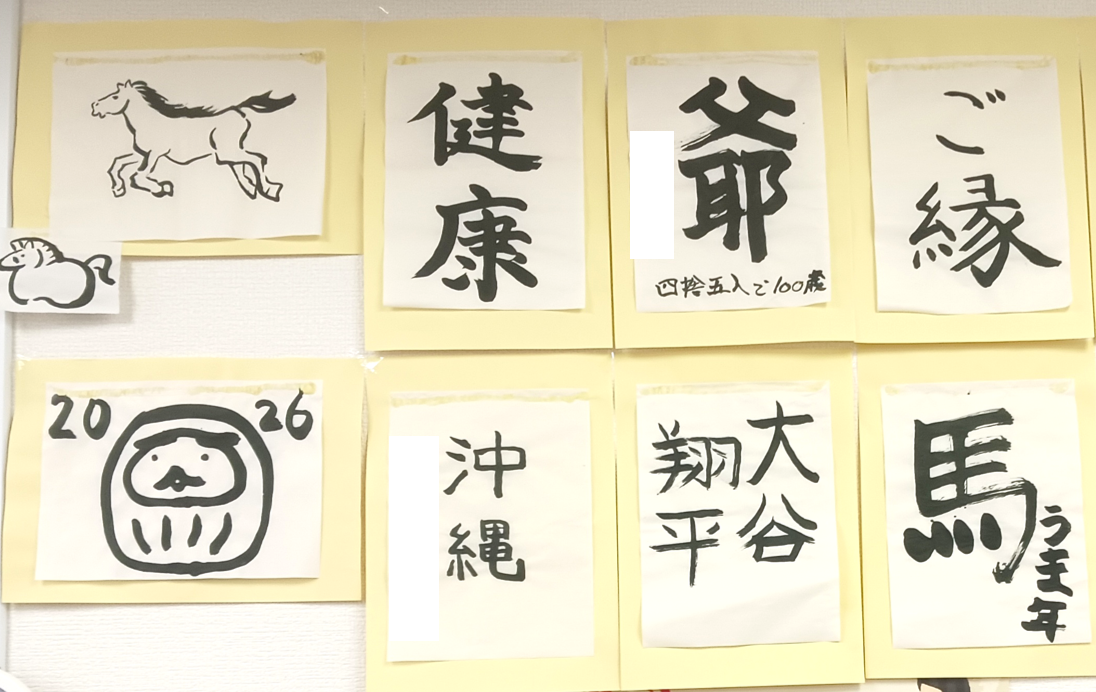 健康
爺
四捨五入で100歳
ご縁
2026
沖縄
大谷
翔平
馬
うま年